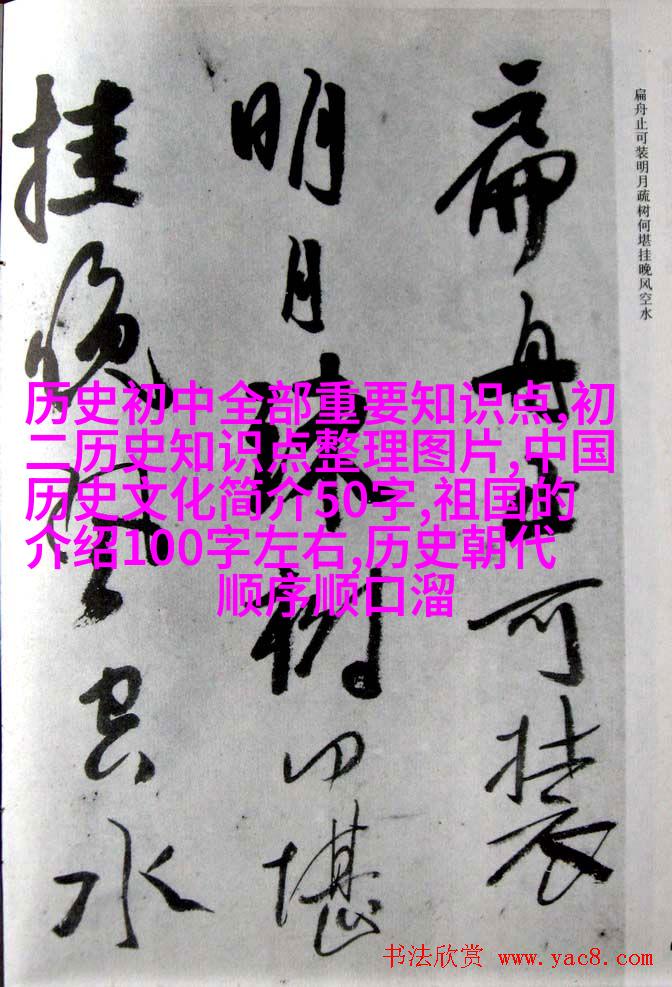 扁舟止可装
明月疏树何堪
挂晚风空水
扁舟止可装明月疏树何堪挂晚风空水
历史初中全部重要知识点,初
二历史知识点整理图片,中国
历史文化简介50字,祖国的
介绍100字左右,历史朝代
顺序顺口溜
书法欣赏 www.yac8.com